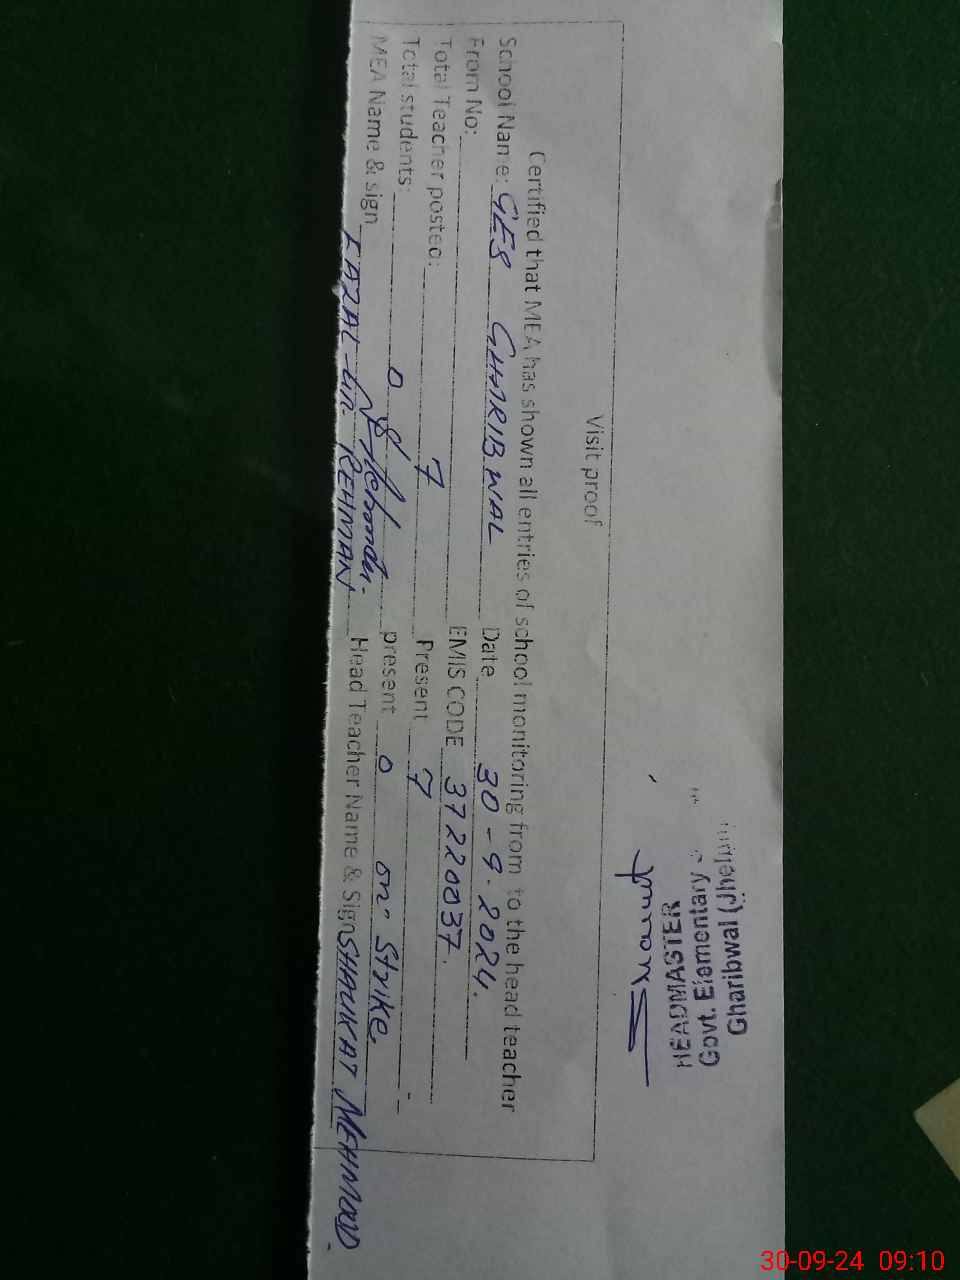 Visit proof
Certified that MEA has shown all entries of school monitoring from to the head teacher
School Name: GES GHARIBWAL Date 30-9-2024.
From No: EMIS CODE 37220037.
Total Teacher posted: 7 Present 7
Total students: 0 present 0 on Strike.
MEA Name & sign FAZAL-UR REHMAN Head Teacher Name & Sign SHAUKAT MEHMOOD.
HEADMASTER
Govt. Elementary
Gharibwal (Jhelum)
30-09-24 09:10